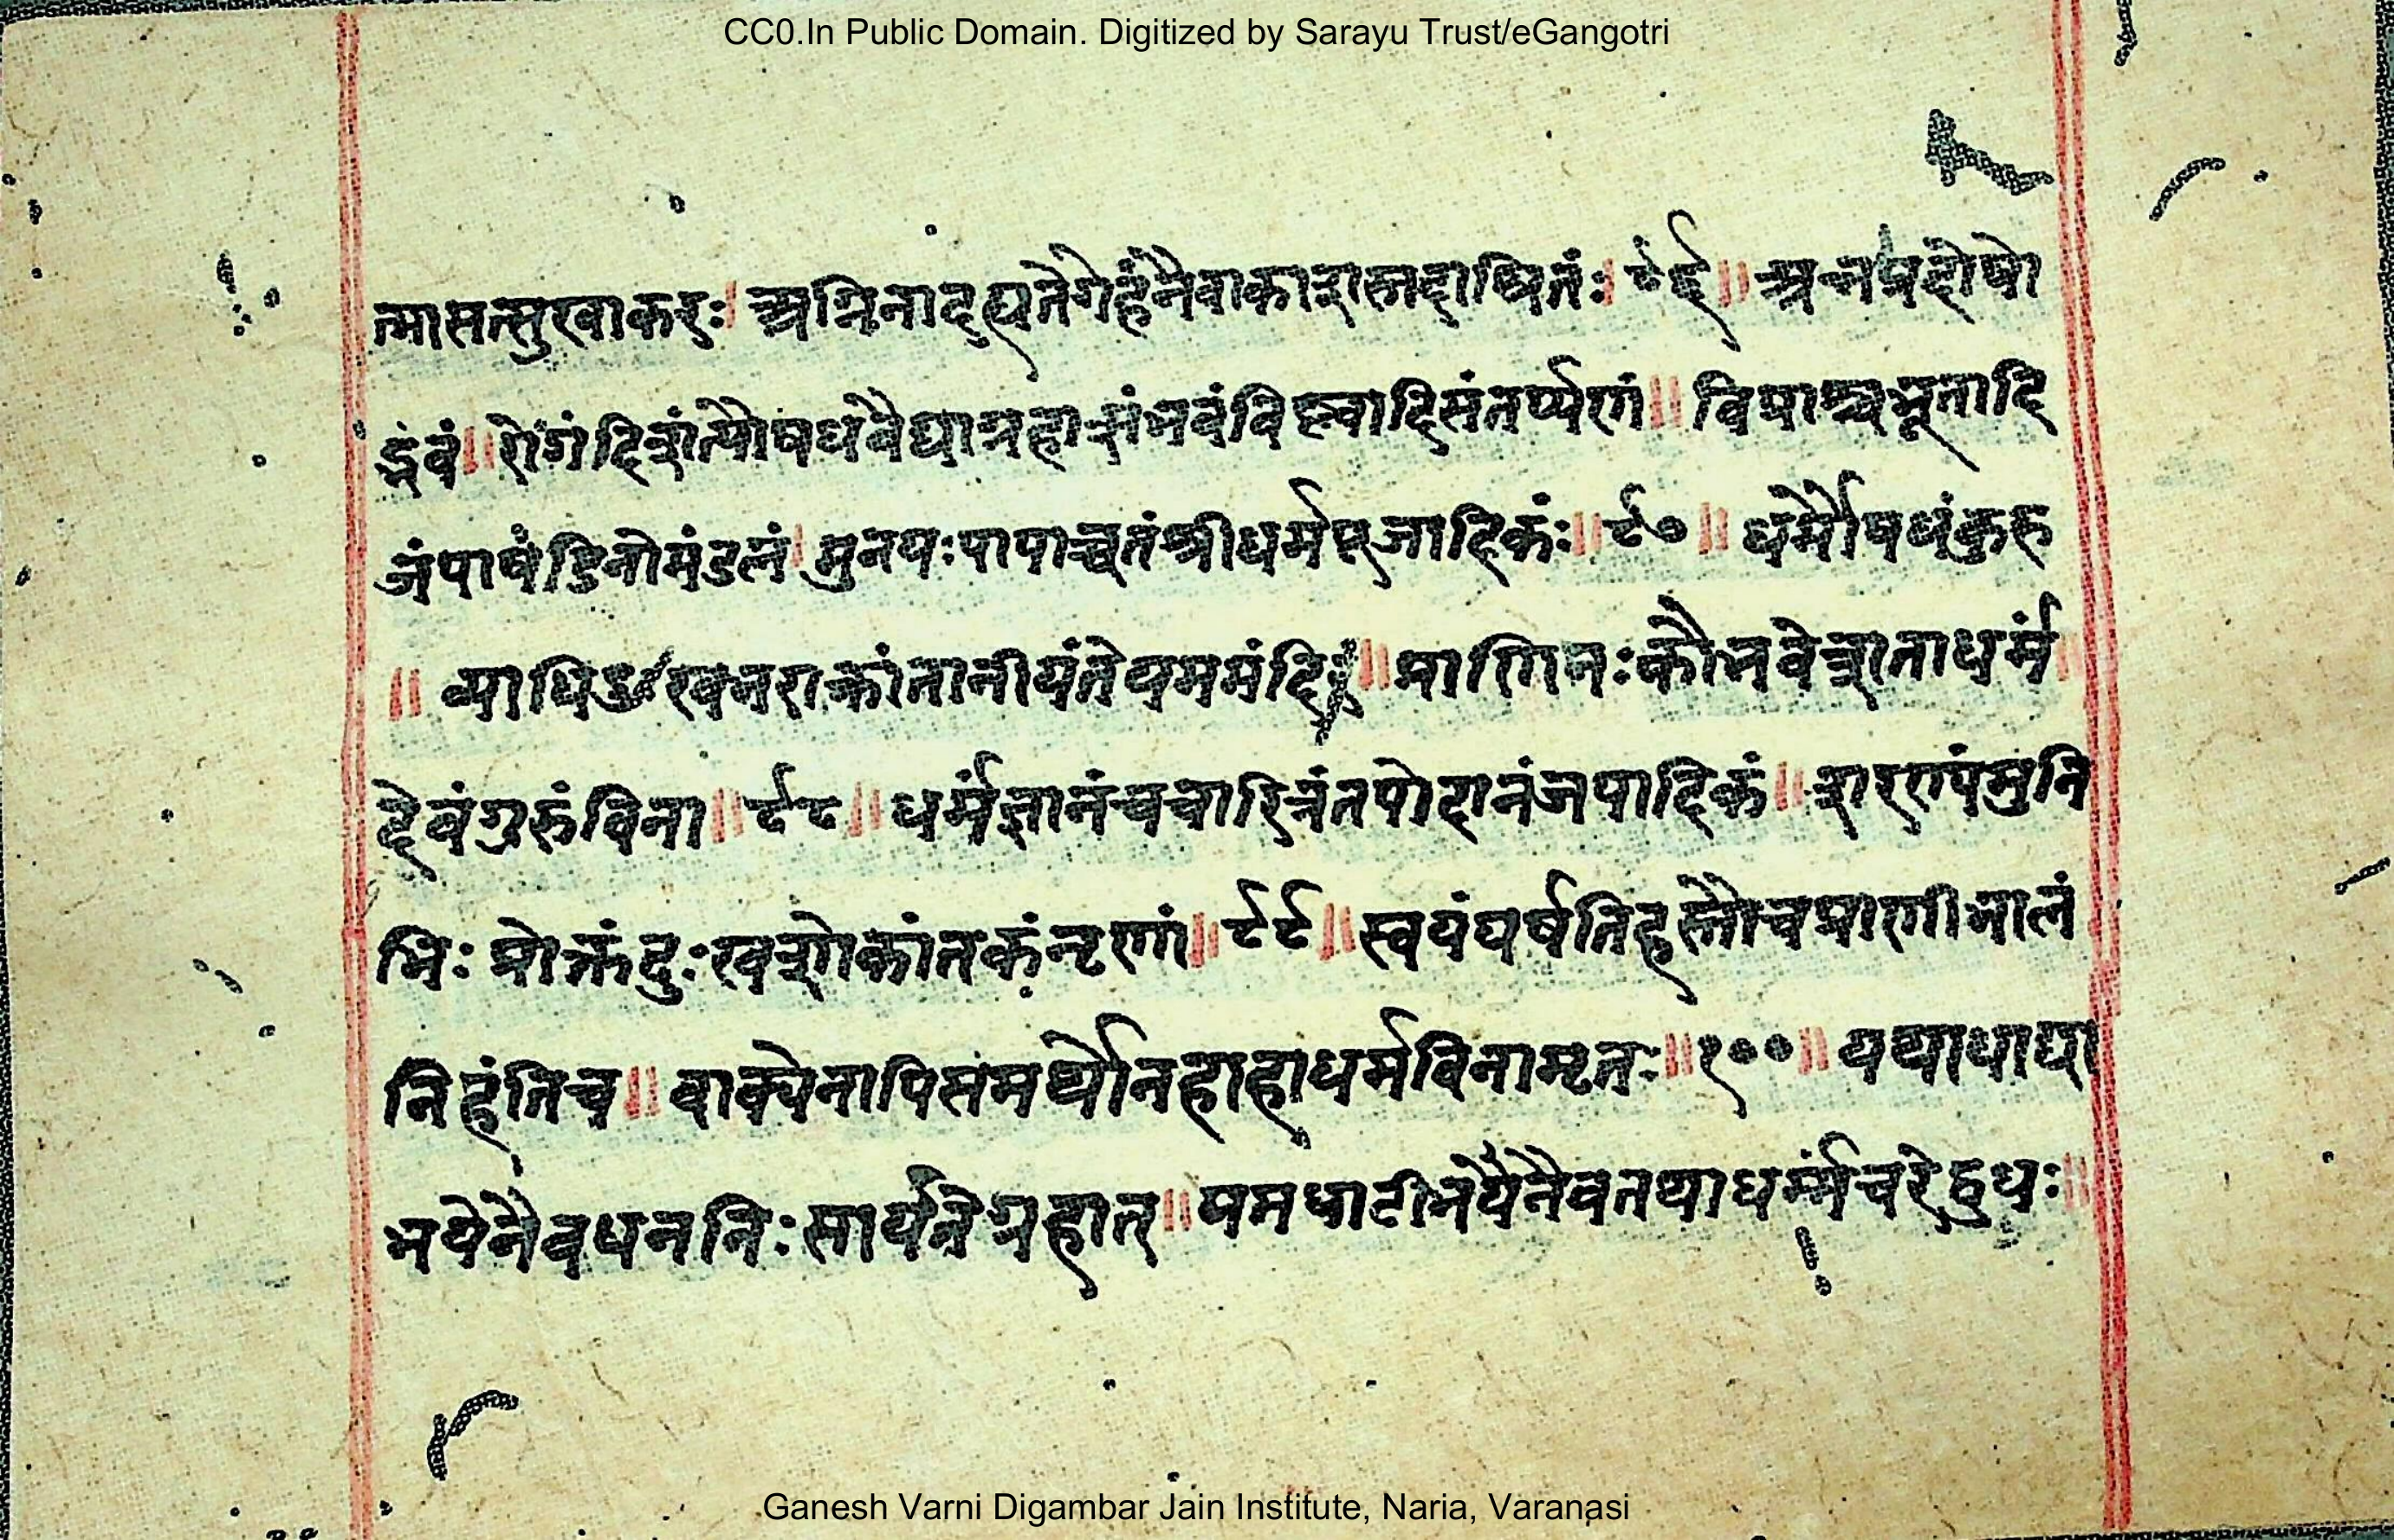 CC0.In Public Domain. Digitized by Sarayu Trust/eGangotri
त्मासत्सुखाकरः। अग्निनादह्यतेगेहंनैवाकाशस्तदाश्रितंः। ९६॥ अन्नप्रदोषो
द्भवं॥ रोगंदिशंत्यौषधवैद्याग्रहाशंभवंविह्वादिसंतर्प्पणं॥ विप्राश्चभूतादि
जंपाषंडिनोमंडलं। मुनयःपापाच्च्रतंश्रीधर्मपूजादिकंः॥ ९७॥ धर्मौषधंकुरु
॥ व्याधिखजराक्रांतानीयंतेयममंदिरं॥ प्राणिनःकौभवेत्राताधर्मं
देवंगुरुंविना॥ ९८॥ धर्मज्ञानंचचारित्रंतपोदानंजपादिकं॥ शरणंमुनि
भिः प्रोक्तंदुःखशोकांतकंनृणां॥ ९९॥ स्वयंघर्षतिहस्तौचप्राणीभालं
निहंतिच॥ वाक्येनापिसमर्थोनहाहाधर्मविनामृतः॥ १००॥ यथाधाघा
भयेनैवधननिःसार्यतेग्रहात्॥ यमधाटीभयैनैवतथाधर्म्मंचरेद्बुधः॥
Ganesh Varni Digambar Jain Institute, Naria, Varanasi